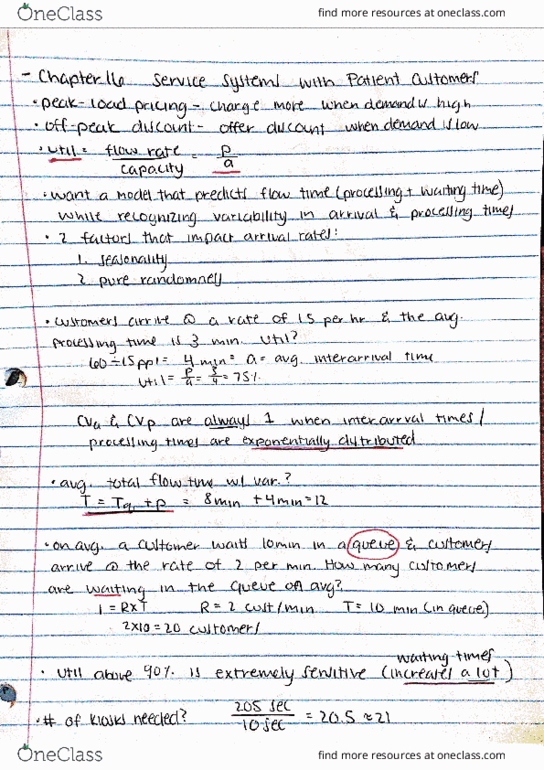 OneClass
find more resources at oneclass.com
- Chapter 16 Service Systems with Patient Customers
• peak-load pricing - charge more when demand is high
• off-peak discount - offer discount when demand is low
• util = flow rate / capacity = p / a
• want a model that predicts flow time (processing + waiting time)
while recognizing variability in arrival & processing times
• 2 factors that impact arrival rates:
1. seasonality
2. pure randomness
• customers arrive @ a rate of 15 per hr & the avg.
processing time is 3 min. util?
60÷15ppl = 4 min = a = avg. interarrival time
util = p/a = 3/4 = 75%
CVa & CVp are always 1 when interarrival times/
processing times are exponentially distributed
• avg. total flow time w/ var.?
T = Tq + p = 8min + 4min = 12
• on avg. a customer waits 10min in a queue & customers
arrive @ the rate of 2 per min. How many customers
are waiting in the queue on avg?
I = RxT R = 2 cust/min T = 10 min (in queue)
2x10 = 20 customers
waiting times
• util above 90% is extremely sensitive (increases a lot)
• # of kiosks needed? 205 sec / 10 sec = 20.5 ≈ 21
OneClass
find more resources at oneclass.com